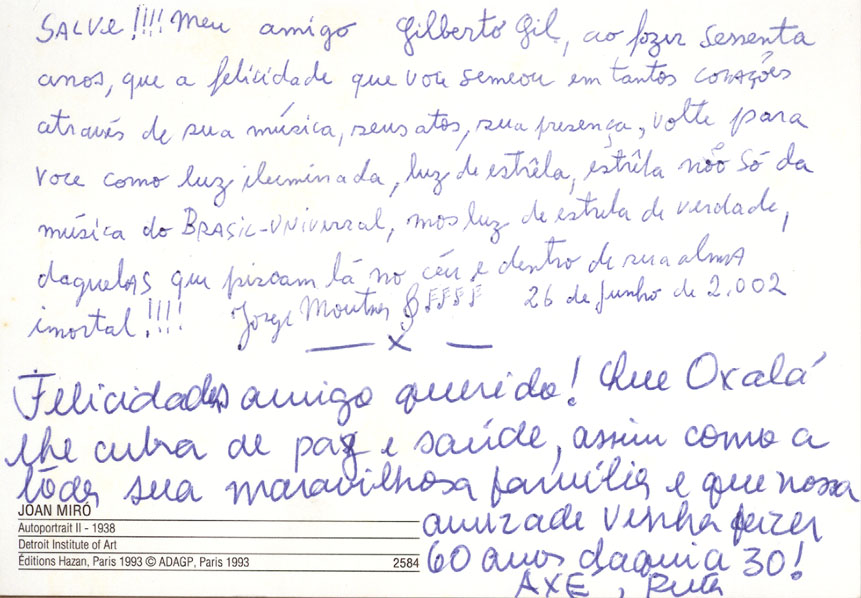 SALVE!!!! Meu amigo Gilberto Gil, ao fazer sessenta
anos, que a felicidade que você semeou em tantos corações
através de sua música, seus atos, sua presença, volte para
voce como luz iluminada, luz de estrêla, estrêla não só da
música do BRASIL-UNIVERSAL, mas luz de estrela de verdade,
daquelas que piscam lá no céu e dentro de sua alma
imortal!!!! Jorge Mautner 26 de Junho de 2.002
— x —
Felicidades amigo querido! Que Oxalá
lhe cubra de paz e saúde, assim como a
tôda sua maravilhosa família e que nossa
amizade venha fazer
60 anos daqui a 30!
AXÉ, Ruth
JOAN MIRÓ
Autoportrait II - 1938
Detroit Institute of Art
Éditions Hazan, Paris 1993 © ADAGP, Paris 1993 2584